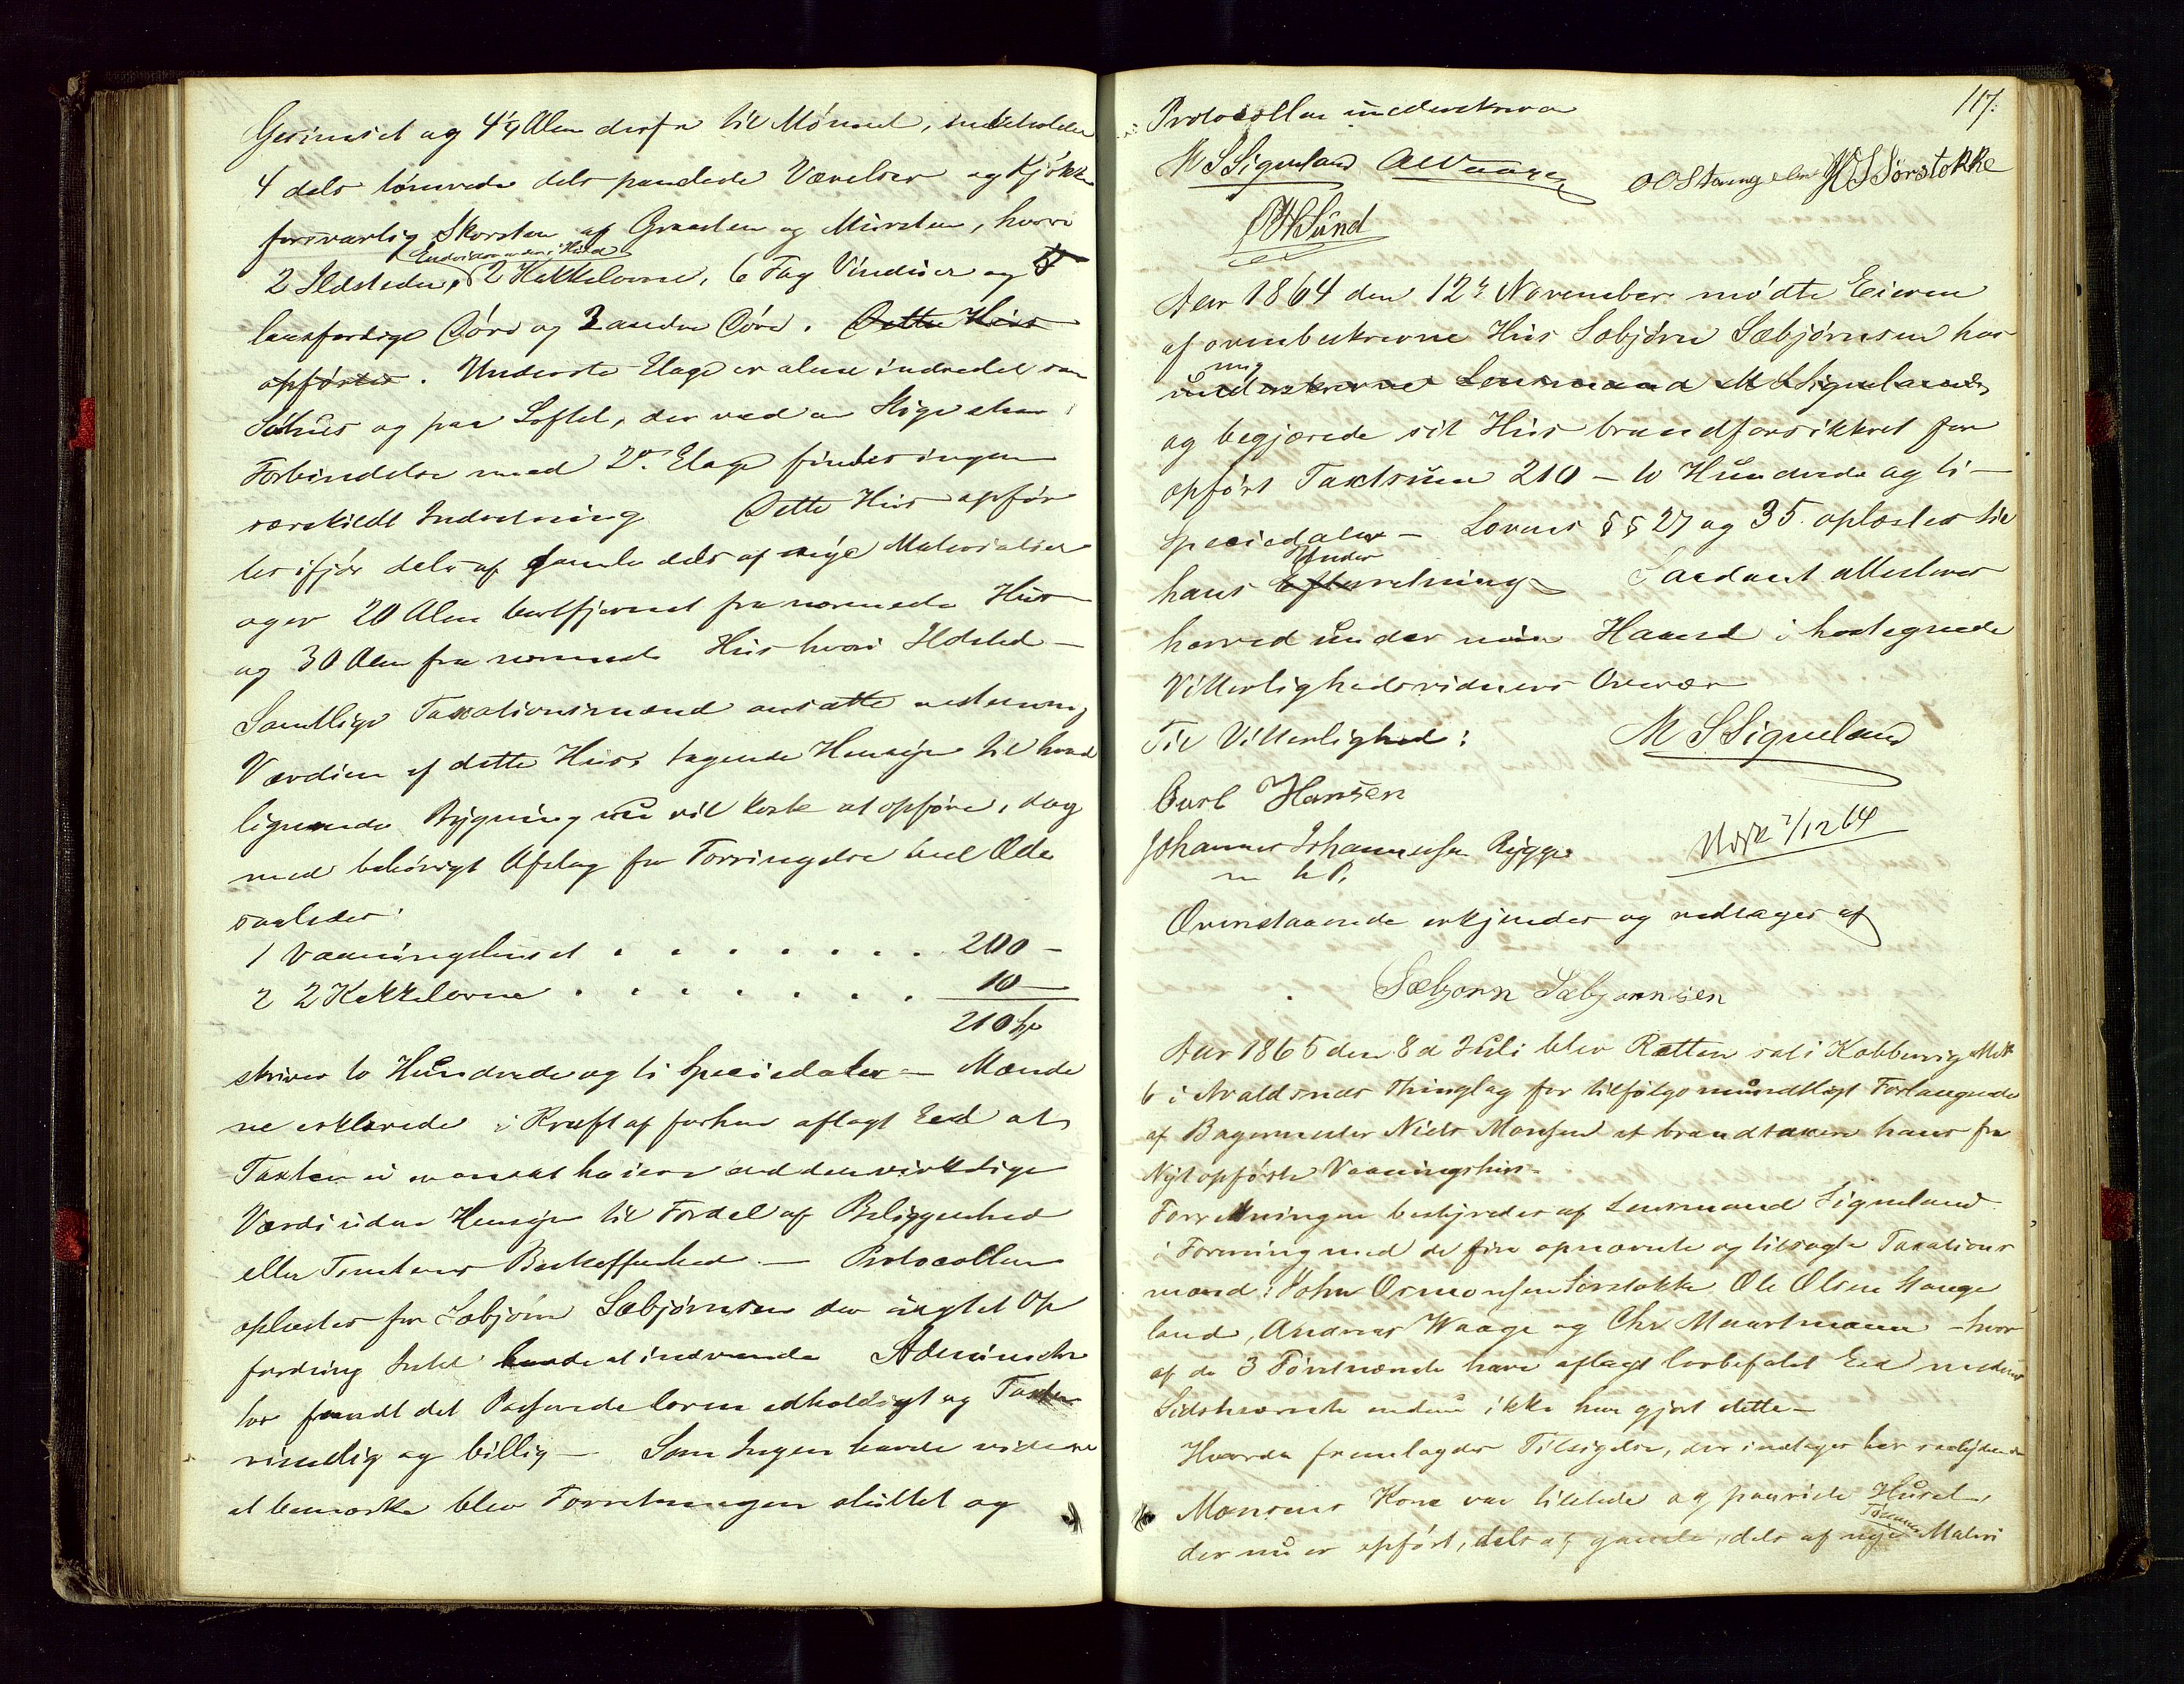 Gesimset og 4¼ Alen derfra til Mønnet, indeholder
4 dels tømrede dels panelede Værelser og Kjøkken
forsvarlig Skorsten af Graasten og Mursten, hvori
2 Ildsteder, 2 Kakkelovne, 6 Fag Vinduer og
laasfærdige Døre og 3 andre Døre. Dette Huus
opførtes. Underste Etage er alene indredet som
Søhuus og paa Loftet, der ved en Stige staar i
Forbindelse med 2den Etage findes ingen
særskildt Indretning Dette Huus opfør
tes ifjor dels af gamle dels af nye Materialier
og er 20 Alen bortfjernet fra nærmeste Huus
og 30 Alen fra nærmeste Huus hvori Ildsted –
Samtlige Taxationsmænd ansatte
Værdien af dette Huus, tagende Hensyn til hvad
lignende Bygning nu vil koste at opføre, dog
med behørigt Afslag for Forringelse ved Ælde
saaledes:
1 Vaaningshuset . . . . . . . 200 –
2 2 Kakkelovne . . . . . . . 10 –
210 Sp
skriver to Hundrede og ti Speciedaler – Mænde
ne erklærede i Kraft af forhen aflagt Eed at
Taxten ei er ansat høiere end den virkelige
Værdi uden Hensyn til Fordel af Beliggenhed
eller Tomtens Beskaffenhed – Protocollen
oplæstes for Sæbjørn Sæbjørnsen der Op
fordring Intet havde at indvende Administra
tor fandt det Passerede loven edholdigt og Taxten
rimelig og billig – Som Ingen havde videre
at bemærke blev Forretningen sluttet og
117.
Protocollen underskreven
M S Sigveland A Waage O O Stangeland J O Sørstokke
Sund
Aar 1864 den 12te November mødte Eieren
af ovenbeskrevne Huus Sæbjørn Sæbjørnsen hos
mig
underskrevne Lensmand M S Sigveland,
og begjærede sit Huus brandforsikkret for
opført Taxtsum 210 – to Hundrede og ti –
Speciedaler – Lovens §§ 27 og 35 oplæstes til
Under
hans Efterretning Saadant attesteres
herved under min Haand i hostegnede
Vitterlighedsvidners Overvær
Til Vitterlighed: M S Sigveland
Carl Hansen
Johannes Johannessen Rygge
m P.
1/12 64
Ovenstaaende erkjendes og vedtages af
Sæbjørn Sæbjørnsen
Aar 1865 den 8de Juli blev Retten sat i Kobbervig Mt
6 i Avaldsnes Thinglag for tilfølge mundtligt Forlangende
af Bagermester Niels Monsen at brandtaxere hans fra
Nyt opførte Vaaningshus.
Forretningen bestyredes af Lensmand Sigveland
i Forening med de fire opnævnte og tilsagte Taxations
mænd: John Osmondsen Sørstokke, Ole Olsen Stange
land, Andreas Waage og Chr Maartmann – hvor
af de 3 Førstnævnte have aflagt lovbefalet Eed medens
Sidstnævnte endnu ikke har gjort dette –
Hvorda fremlagdes Tilsigelse, der indtages her saalydende
Monsens Kone var tilstede og paaviste Huset,
Tømmer
der nu er opført, dels af gamle, dels af nye Materi